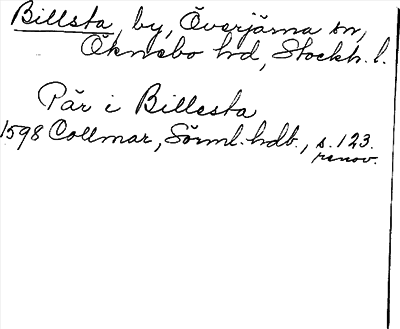 Billsta, by, Överjärna sn,
Öknebo hd, Stockh. l.
Pär i Billesta
1598 Collmar, Sörml. hdb., s. 123.
renov.